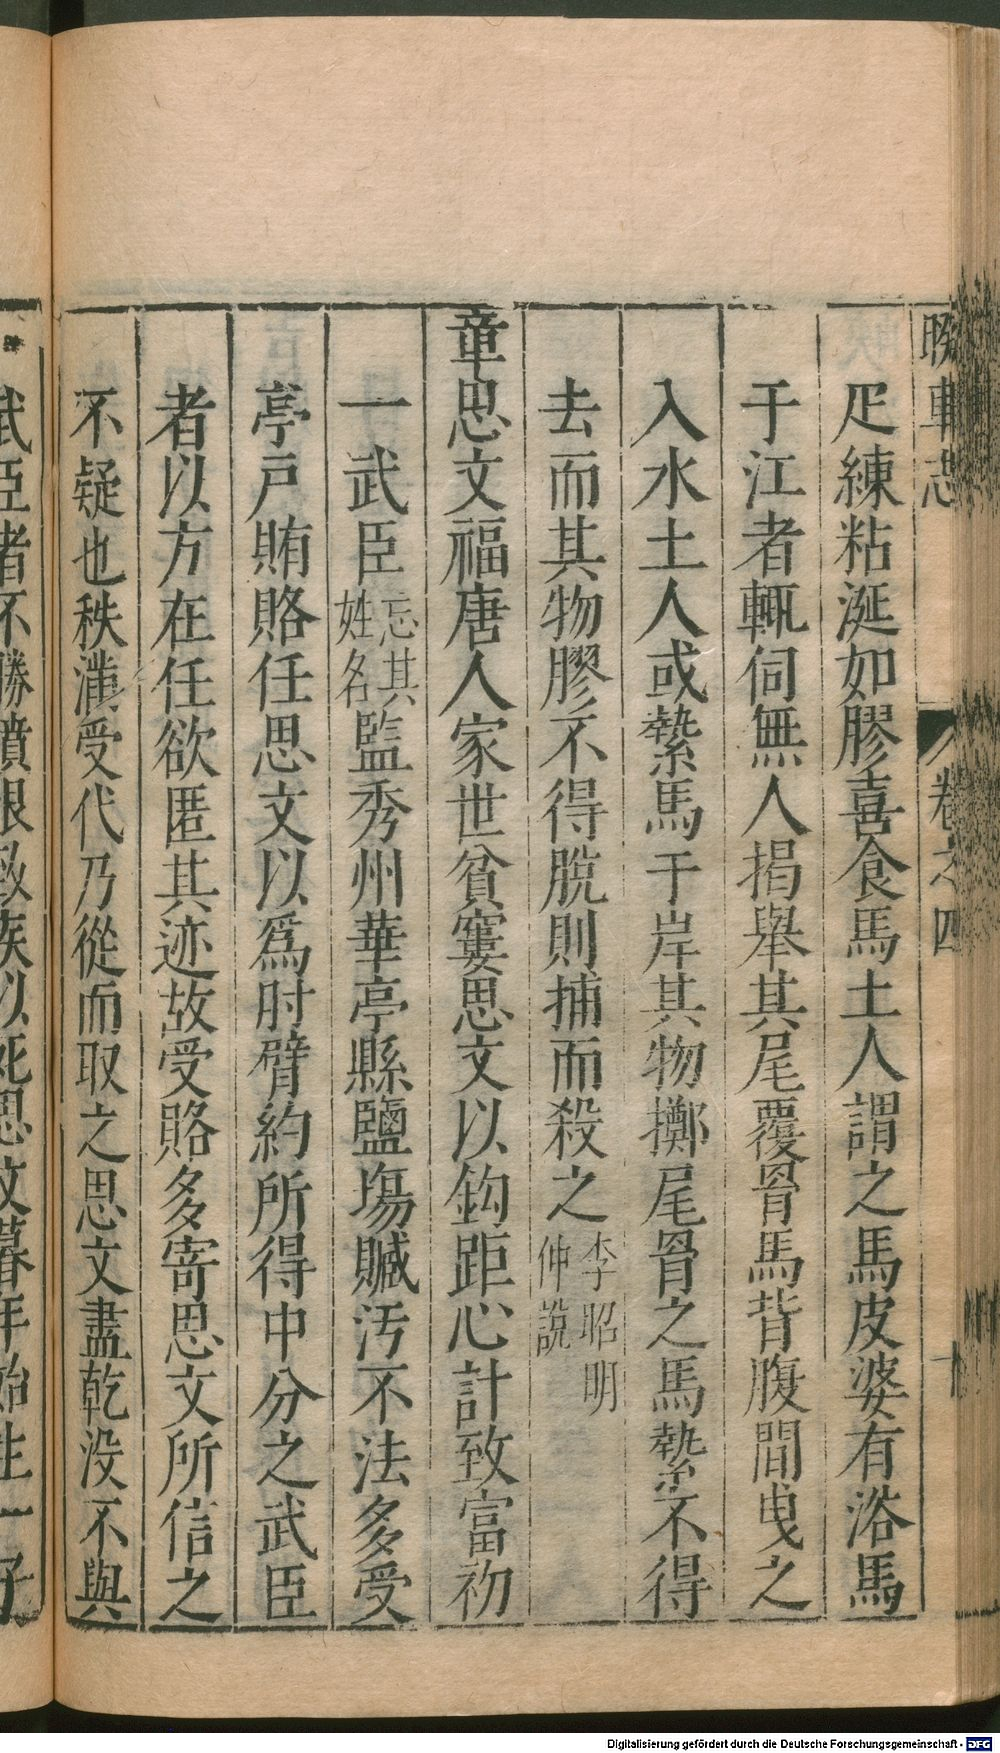 睽車志
卷之四
疋練粘涎如膠喜食馬土人謂之馬皮婆有浴馬
于江者輒伺無人揭舉其尾覆罥馬背腹間曳之
入水土人或縶馬于岸其物擲尾罥之馬縶不得
去而其物膠不得脫則捕而殺之李昭明仲說
章思文福唐人家世貧窶思文以鈎距心計致富初
一武臣忘其姓名監秀州華亭縣鹽塲贓汚不法多受
亭戶賄賂任思文以爲肘臂約所得中分之武臣
者以方在任欲匿其迹故受賂多寄思文所信之
不疑也秩滿受代乃從而取之思文盡乾沒不與
武臣者不勝憤恨致疾以死思文暮年始生一子
Digitalisierung gefördert durch die Deutsche Forschungsgemeinschaft - DFG